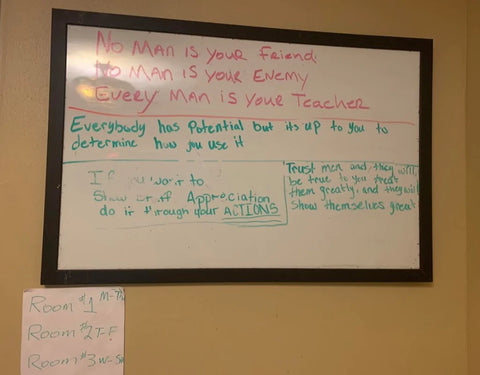 No Man is your Friend.
No Man is your Enemy
Every Man is Your Teacher
Everybody has Potential but its up to you to
determine how you use it
If you want to
Show off Appreciation
do it through your ACTIONS
Trust men and they will
be true to you treat
them greatly, and they will
show themselves great
Room #1 M-Th
Room #2 T-F
Room #3 W-Sa